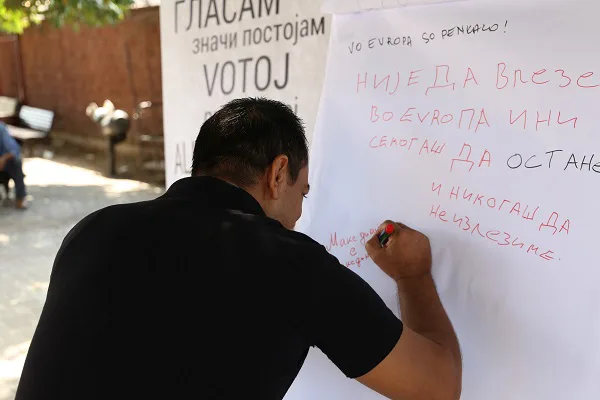 ГЛАСАМ
значи постојам
VOTOJ
VO EVROPA SO PENKALO!
НИЈЕ ДА ВЛЕЗЕ
ВО EVROПА ИНИ
СЕКОГАШ ДА ОСТАНЕ
И НИКОГАШ ДА
НЕ ИЗЛЕЗИМЕ.